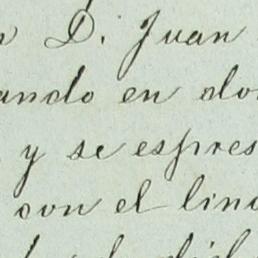 D. Juan
ando en do
y se espres
con el lind